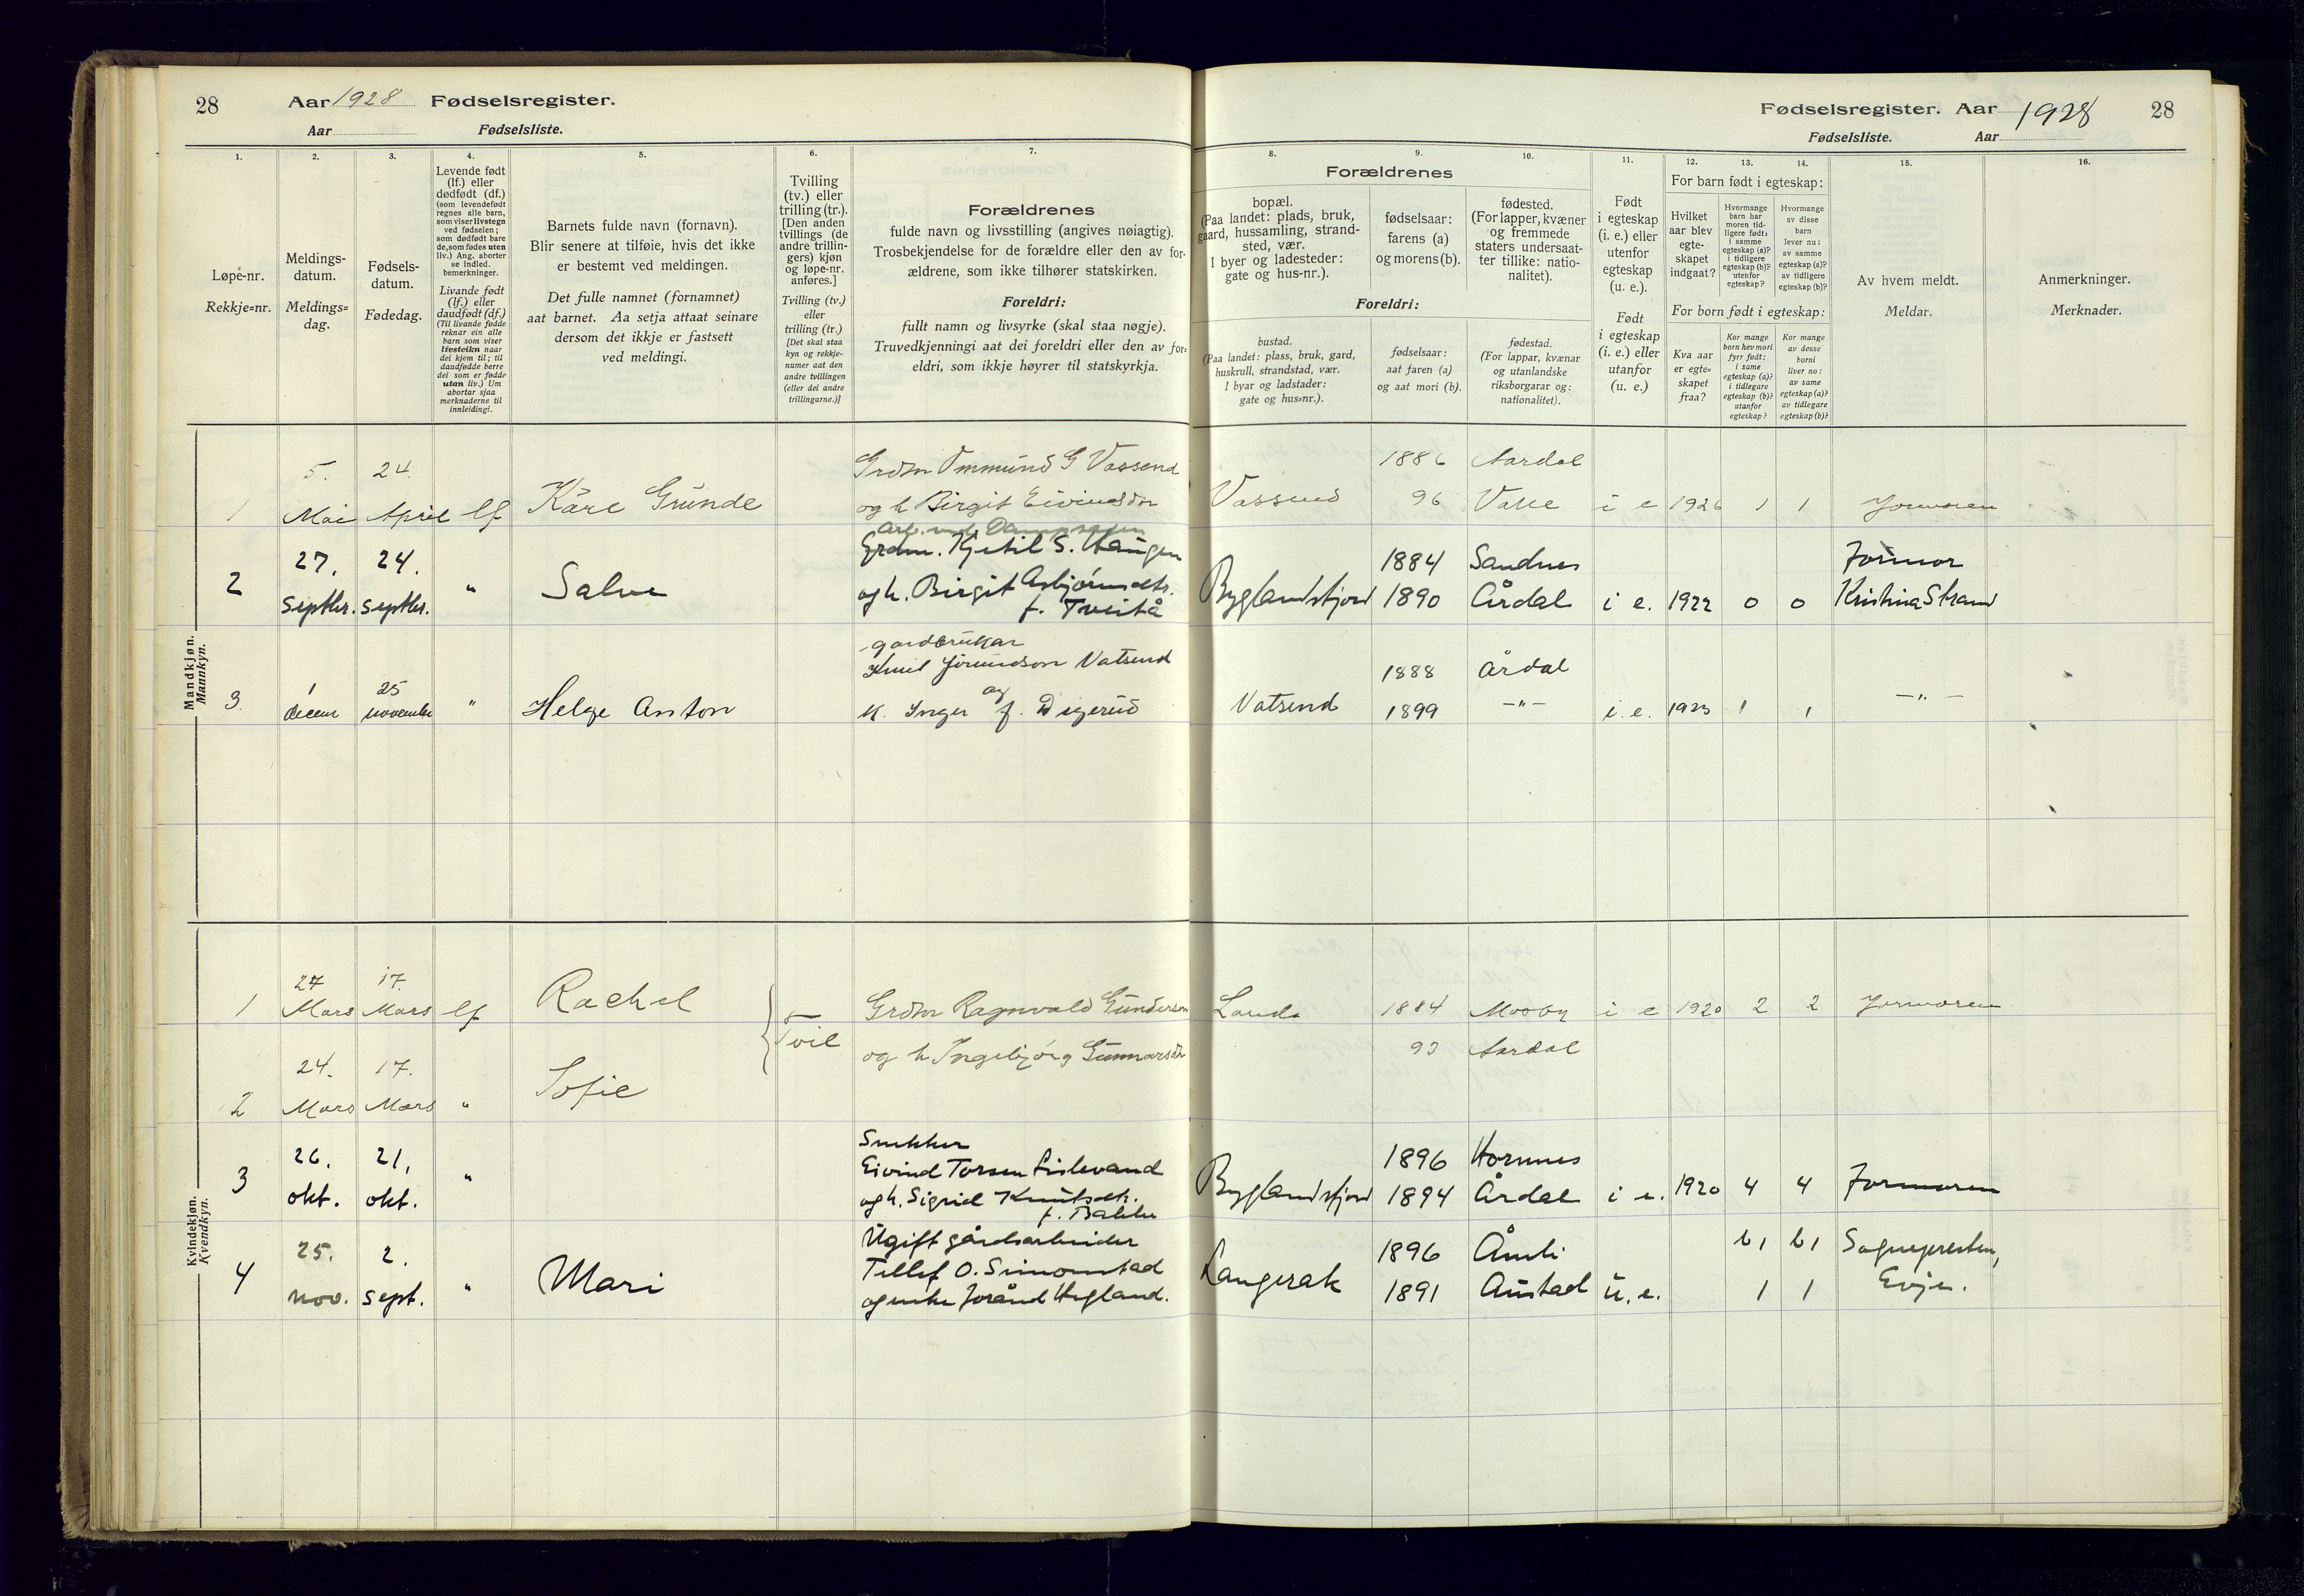 28 Aar 1928 Fødselsregister.
Aar Fødselsliste.
Fødselsregister. Aar 1928 28
Fødselsliste. Aar
1.
Løpe-nr.
Rekkje=nr.
2.
Meldings-
datum.
Meldings=
dag.
3.
Fødsels-
datum.
Fødedag.
4.
Levende født
(lf.) eller
dødfødt (df.)
(som levendefødt
regnes alle barn,
som viser livstegn
ved fødselen;
som dødfødt bare
de, som fødes uten
liv.) Ang. aborter
se indled.
bemerkninger.
Livande født
(lf.) eller
daudfødt (df.)
(Til livande fødde
reknar ein alle
barn som viser
livsteikn naar
dei kjem til; til
daudfødde berre
dei som er fødde
utan liv.) Um
abortar sjaa
merknaderne til
innleidingi.
5.
Barnets fulde navn (fornavn).
Blir senere at tilføie, hvis det ikke
er bestemt ved meldingen.
Det fulle namnet (fornamnet)
aat barnet. Aa setja attaat seinare
dersom det ikkje er fastsett
ved meldingi.
6.
Tvilling
(tv.) eller
trilling (tr.).
[Den anden
tvillings (de
andre trillin-
gers) kjøn
og løpe-nr.
anføres.]
Tvilling (tv.)
eller
trilling (tr.)
[Det skal staa
kyn og rekkje-
numer aat den
andre tvillingen
(eller dei andre
trillingarne.)]
7.
Forældrenes
fulde navn og livsstilling (angives nøiagtig).
Trosbekjendelse for de forældre eller den av for-
ældrene, som ikke tilhører statskirken.
Foreldri:
fullt namn og livsyrke (skal staa nøgje).
Truvedkjenningi aat dei foreldri eller den av for=
eldri, som ikkje høyrer til statskyrkja.
Forældrenes
8.
bopæl.
(Paa landet: plads, bruk,
gaard, hussamling, strand-
sted, vær.
I byer og ladesteder:
gate og hus-nr.).
9.
fødselsaar:
farens (a)
og morens (b).
10.
fødested.
(For lapper, kvæner
og fremmede
staters undersaat-
ter tillike: natio-
nalitet).
Foreldri:
bustad.
(Paa landet: plass, bruk, gard,
huskrull, strandstad, vær.
I byar og ladstader:
gate og hus=nr.).
fødselsaar:
aat faren (a)
og aat mori (b).
fødestad.
(For lappar, kvænar
og utanlandske
riksborgarar og:
nationalitet).
11.
Født
i egteskap
(i. e.) eller
utenfor
egteskap
(u. e.).
Født
i egteskap
(i. e.) eller
utanfor
(u. e.)
12. 13. 14.
For barn født i egteskap:
Hvilket
aar blev
egte-
skapet
indgaat?
Hvormange
barn har
moren tid-
ligere født:
i samme
egteskap (a)?
i tidligere
egteskap (b)?
utenfor
egteskap?
Hvormange
av disse
barn
lever nu:
av samme
egteskap (a)?
av tidligere
egteskap (b)?
For born født i egteskap:
Kva aar
er egte=
skapet
fraa?
Kor mange
born hev mori
fyrr født:
i same
egteskap (a)?
i tidlegare
egteskap (b)?
utanfor
egteskap?
Kor mange
av desse
borni
liver no:
av same
egteskap (a)?
av tidlegare
egteskap (b)?
15.
Av hvem meldt.
Meldar.
16.
Anmerkninger.
Merknader.
Mandkjøn.
Mannkyn.
1 5. Mai 24. April lf Kåre Gunde
Grdm Ommund G Vassend
og h Birgit Eivindsdr
Vassend 1886 Aardal
96 Valle i e 1926 1 1 Jormoren
2 27. septbr. 24. septbr. " Salve
Arb. ved Dampsagen
Grdm. Kjetil S. Haugen
og h. Birgit Asbjørnsdtr.
f. Tveitå
Byglandsfjord 1884 Sandnes
1890 Årdal i e. 1922 0 0 Jormor
Kristina Strand
3 1 decem 25 november " Helge Anton
gardbrukar
Knut Jorundson Vatsend
og
k. Inger f. Digerud
Vatsend 1888 Årdal
1899 –"– i. e. 1923 1 1 –"–
Kvindekjøn.
Kvendkyn.
1 27 Mars 17. Mars lf Rachel
Tvil
Grdm Ragnvald Gunderson
og h Ingebjørg Gunnarsdr
Landa 1884 Mosby i e 1920 2 2 Jormoren
93 Aardal
2 24. Mars 17. Mars " Sofie
3 26. okt. 21. okt. "
Snekker
Eivind Torsen Lislevand
og h. Sigrid Knutsdtr.
f. Bakke
Byglandsfjord 1896 Hornnes
1894 Årdal i e. 1920 4 4 Jormoren
4 25. nov. 2. sept. " Mari
Ugift gårdsarbeider
Tellef O. Simonstad
og enke Jorånd Hegland.
Langerak 1896 Åmli b 1 b 1 Sognepresten,
1891 Austad u. e. 1 1 Evje.